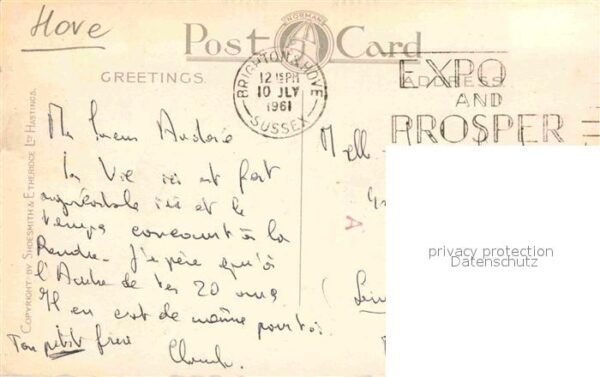 Hove
NORMAN
Post Card
BRIGHTON & HOVE
12 15 PM
10 JLY
1961
SUSSEX
EXPO
AND
PROSPER
GREETINGS.
ADDRESS
COPYRIGHT BY SHOESMITH & ETHERIDGE LTD HASTINGS.
Ma
La Vie ici est fort
agréable ici et le
temps concourt à la
Rendre. J'espère qu'à
l'Aube de tes 20 ans
Il en est de même pour toi.
Ton petit frère
Melle
A
privacy protection
Datenschutz